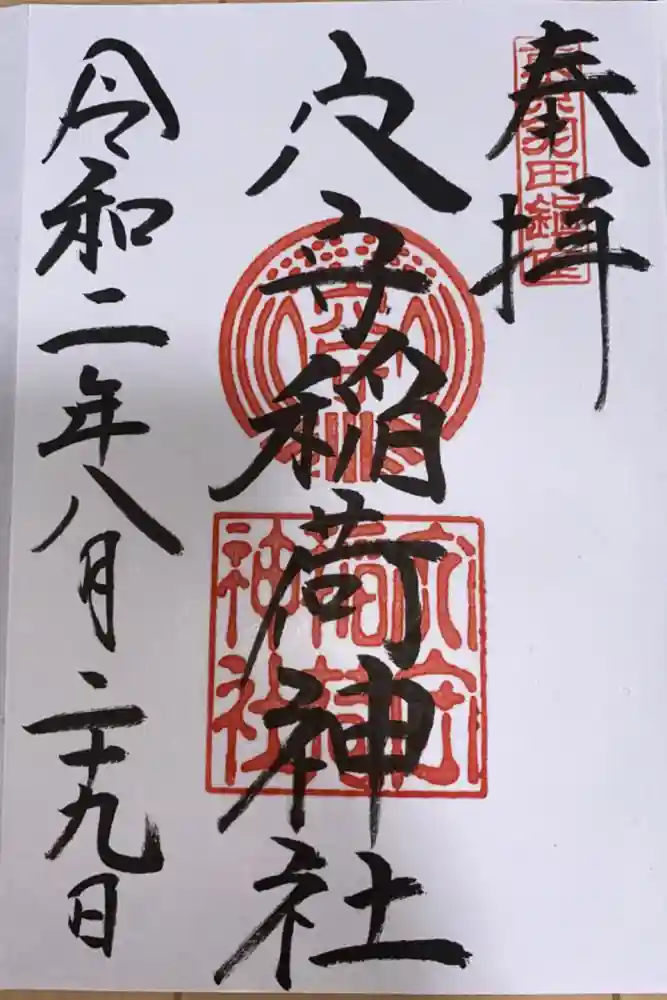 奉拝
東京羽田鎮座
穴守稲荷神社
穴守
稲荷
神社
令和二年八月二十九日